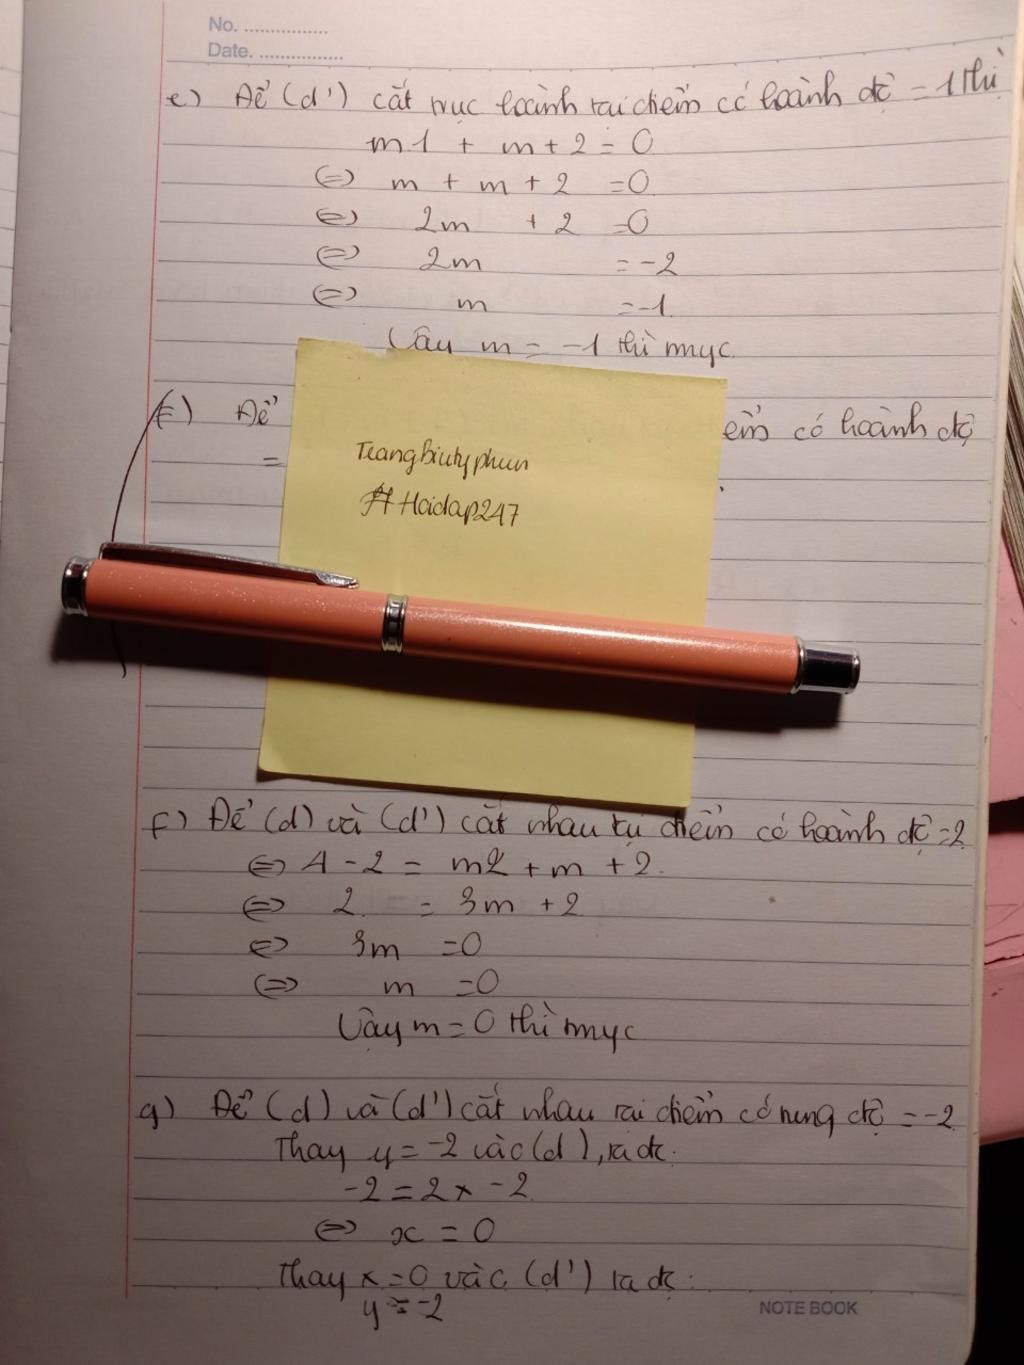 No. ................
Date. ................
e) Để (d') cắt trục hoành tại điểm có hoành độ = 1 thì
m.1 + m + 2 = 0
<=> m + m + 2 = 0
<=> 2m + 2 = 0
<=> 2m = -2
<=> m = -1
Vậy m = -1 thì mycc
f) Để
ểm có hoành độ
=
Trangbiutyphun
#Hoidap247
f) Để (d) và (d') cắt nhau tại điểm có hoành độ = 2
<=> 4 - 2 = m2 + m + 2
<=> 2 = 3m + 2
<=> 3m = 0
<=> m = 0
Vậy m = 0 thì myc
g) Để (d) và (d') cắt nhau tại điểm có tung độ = -2
Thay y = -2 vào (d), ta đc
-2 = 2x - 2
<=> x = 0
Thay x = 0 vào (d') ta đc:
y = -2
NOTE BOOK